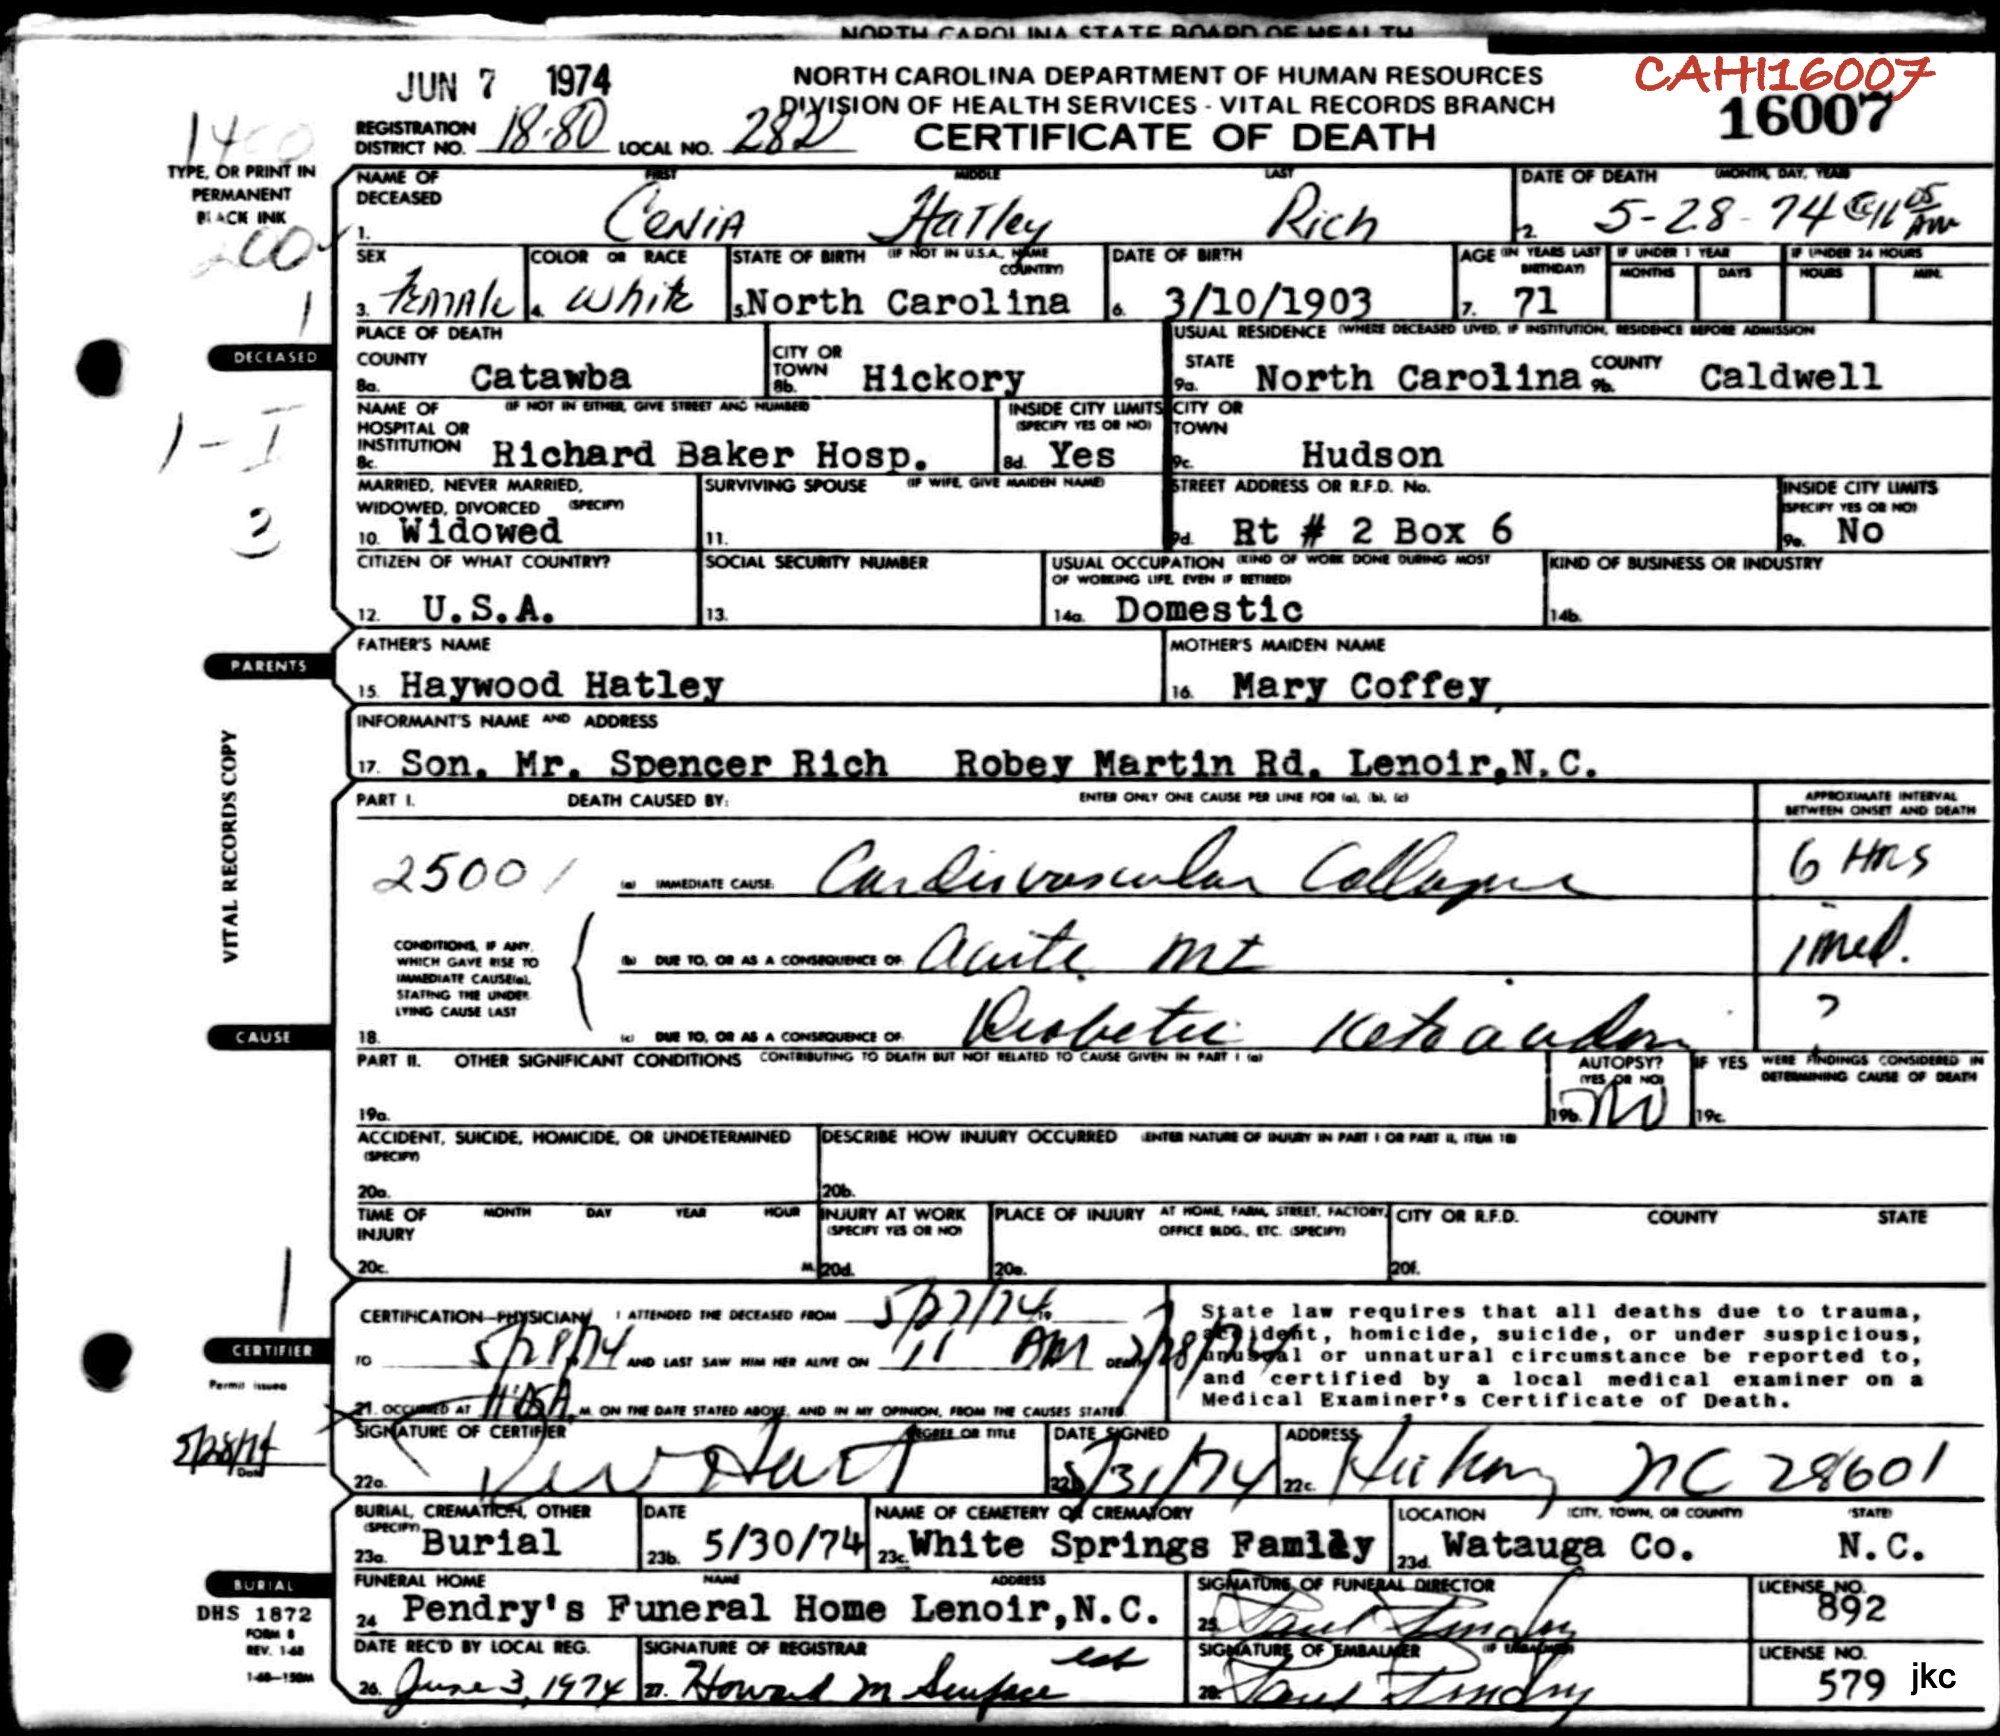 NORTH CAROLINA STATE BOARD OF HEALTH
CAHI16007
JUN 7 1974
NORTH CAROLINA DEPARTMENT OF HUMAN RESOURCES
DIVISION OF HEALTH SERVICES - VITAL RECORDS BRANCH
16007
REGISTRATION DISTRICT NO. 18-80 LOCAL NO. 282
CERTIFICATE OF DEATH
TYPE, OR PRINT IN
PERMANENT
BLACK INK
NAME OF DECEASED FIRST MIDDLE LAST
1. Cenia Hatley Rich
DATE OF DEATH (MONTH, DAY, YEAR)
2. 5-28-74 @ 11 05 AM
SEX
3. Female
COLOR OR RACE
4. White
STATE OF BIRTH (IF NOT IN U.S.A., NAME COUNTRY)
5. North Carolina
DATE OF BIRTH
6. 3/10/1903
AGE (IN YEARS LAST BIRTHDAY)
7. 71
IF UNDER 1 YEAR
MONTHS DAYS
IF UNDER 24 HOURS
HOURS MIN.
DECEASED
PLACE OF DEATH
COUNTY
8a. Catawba
CITY OR TOWN
8b. Hickory
USUAL RESIDENCE (WHERE DECEASED LIVED, IF INSTITUTION, RESIDENCE BEFORE ADMISSION
STATE
9a. North Carolina
COUNTY
9b. Caldwell
1-I
NAME OF HOSPITAL OR INSTITUTION (IF NOT IN EITHER, GIVE STREET AND NUMBER)
8c. Richard Baker Hosp.
INSIDE CITY LIMITS (SPECIFY YES OR NO)
8d. Yes
CITY OR TOWN
9c. Hudson
MARRIED, NEVER MARRIED,
WIDOWED, DIVORCED (SPECIFY)
10. Widowed
SURVIVING SPOUSE (IF WIFE, GIVE MAIDEN NAME)
11.
STREET ADDRESS OR R.F.D. No.
9d. Rt # 2 Box 6
INSIDE CITY LIMITS
(SPECIFY YES OR NO)
9e. No
CITIZEN OF WHAT COUNTRY?
12. U.S.A.
SOCIAL SECURITY NUMBER
13.
USUAL OCCUPATION (KIND OF WORK DONE DURING MOST
OF WORKING LIFE, EVEN IF RETIRED)
14a. Domestic
KIND OF BUSINESS OR INDUSTRY
14b.
PARENTS
FATHER'S NAME
15. Haywood Hatley
MOTHER'S MAIDEN NAME
16. Mary Coffey
INFORMANT'S NAME AND ADDRESS
17. Son. Mr. Spencer Rich Robey Martin Rd. Lenoir,N.C.
VITAL RECORDS COPY
PART I. DEATH CAUSED BY: ENTER ONLY ONE CAUSE PER LINE FOR (a), (b), (c)
APPROXIMATE INTERVAL
BETWEEN ONSET AND DEATH
2500 /
(a) IMMEDIATE CAUSE: Cardiovascular Collapse 6 HRS
CONDITIONS, IF ANY,
WHICH GAVE RISE TO
IMMEDIATE CAUSE(a),
STATING THE UNDER-
LYING CAUSE LAST
(b) DUE TO, OR AS A CONSEQUENCE OF: Acute MI imed.
CAUSE
18. (c) DUE TO, OR AS A CONSEQUENCE OF: Diabetic Ketoacidosis ?
PART II. OTHER SIGNIFICANT CONDITIONS CONTRIBUTING TO DEATH BUT NOT RELATED TO CAUSE GIVEN IN PART I (a)
19a.
AUTOPSY?
(YES OR NO)
19b. No
IF YES WERE FINDINGS CONSIDERED IN
DETERMINING CAUSE OF DEATH
19c.
ACCIDENT, SUICIDE, HOMICIDE, OR UNDETERMINED
(SPECIFY)
20a.
DESCRIBE HOW INJURY OCCURRED (ENTER NATURE OF INJURY IN PART I OR PART II, ITEM 18)
20b.
TIME OF INJURY MONTH DAY YEAR HOUR
20c. M.
INJURY AT WORK
(SPECIFY YES OR NO)
20d.
PLACE OF INJURY AT HOME, FARM, STREET, FACTORY,
OFFICE BLDG., ETC. (SPECIFY)
20e.
CITY OR R.F.D. COUNTY STATE
20f.
CERTIFIER
Permit issued
5/28/74
Date
CERTIFICATION-PHYSICIAN I ATTENDED THE DECEASED FROM 5/27/74 19
TO 5/28/74 AND LAST SAW HIM HER ALIVE ON 11 AM 5/28/74 DEATH
21. OCCURRED AT 11:05A. M. ON THE DATE STATED ABOVE, AND IN MY OPINION, FROM THE CAUSES STATED.
State law requires that all deaths due to trauma,
accident, homicide, suicide, or under suspicious,
unusual or unnatural circumstance be reported to,
and certified by a local medical examiner on a
Medical Examiner's Certificate of Death.
SIGNATURE OF CERTIFIER DEGREE OR TITLE
22a.
DATE SIGNED
22b. 5/31/74
ADDRESS
22c. Hickory NC 28601
BURIAL, CREMATION, OTHER
(SPECIFY)
23a. Burial
DATE
23b. 5/30/74
NAME OF CEMETERY OR CREMATORY
23c. White Springs Family
LOCATION (CITY, TOWN, OR COUNTY) (STATE)
23d. Watauga Co. N.C.
BURIAL
DHS 1872
FORM 8
REV. 1-68
1-68-150M
FUNERAL HOME NAME ADDRESS
24 Pendry's Funeral Home Lenoir,N.C.
SIGNATURE OF FUNERAL DIRECTOR
25. Paul Pendry
LICENSE NO.
892
DATE REC'D BY LOCAL REG.
26. June 3, 1974
SIGNATURE OF REGISTRAR
27. Howard M
SIGNATURE OF EMBALMER (IF EMBALMED)
28. Paul Pendry
LICENSE NO.
579
jkc